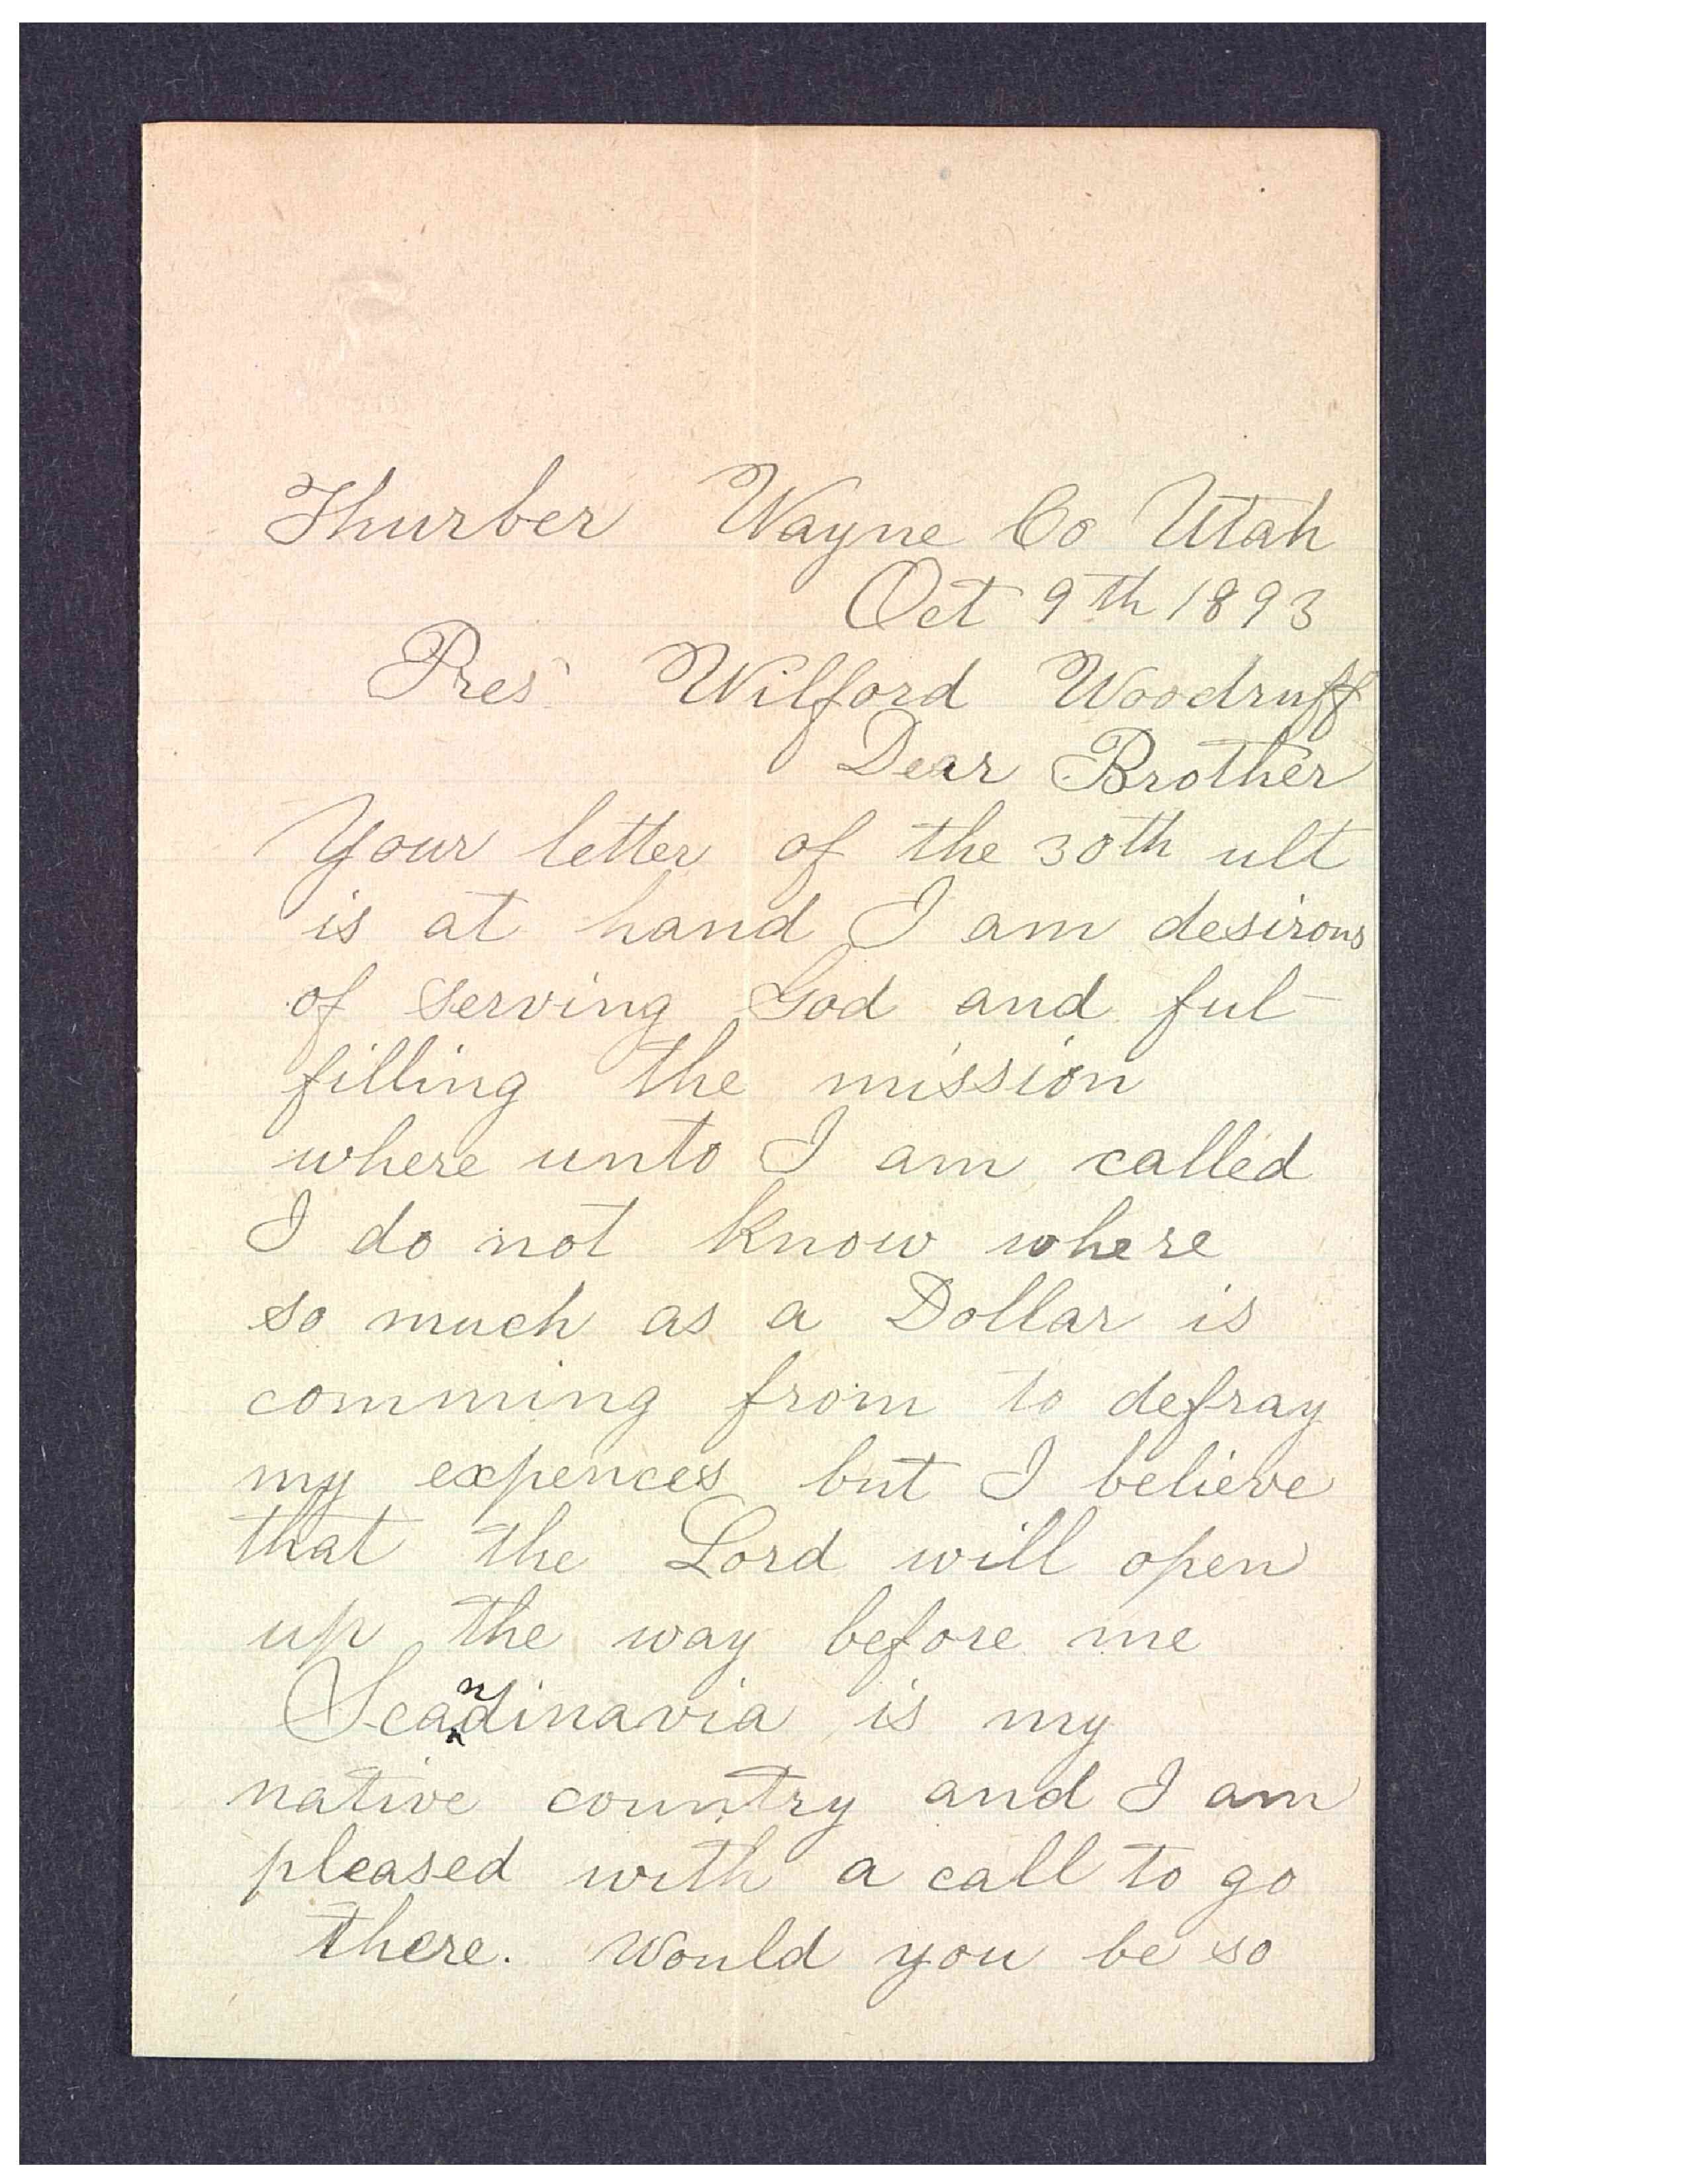 Thurber Wayne Co Utah
Oct 9th 1893
Pres Wilford Woodruff
Dear Brother
Your letter of the 30th ult
is at hand I am desirous
of serving God and ful-
filling the mission
where unto I am called
I do not know where
so much as a Dollar is
comming from to defray
my expences but I believe
that the Lord will open
up the way before me
Scandinavia is my
native country and I am
pleased with a call to go
there. Would you be so